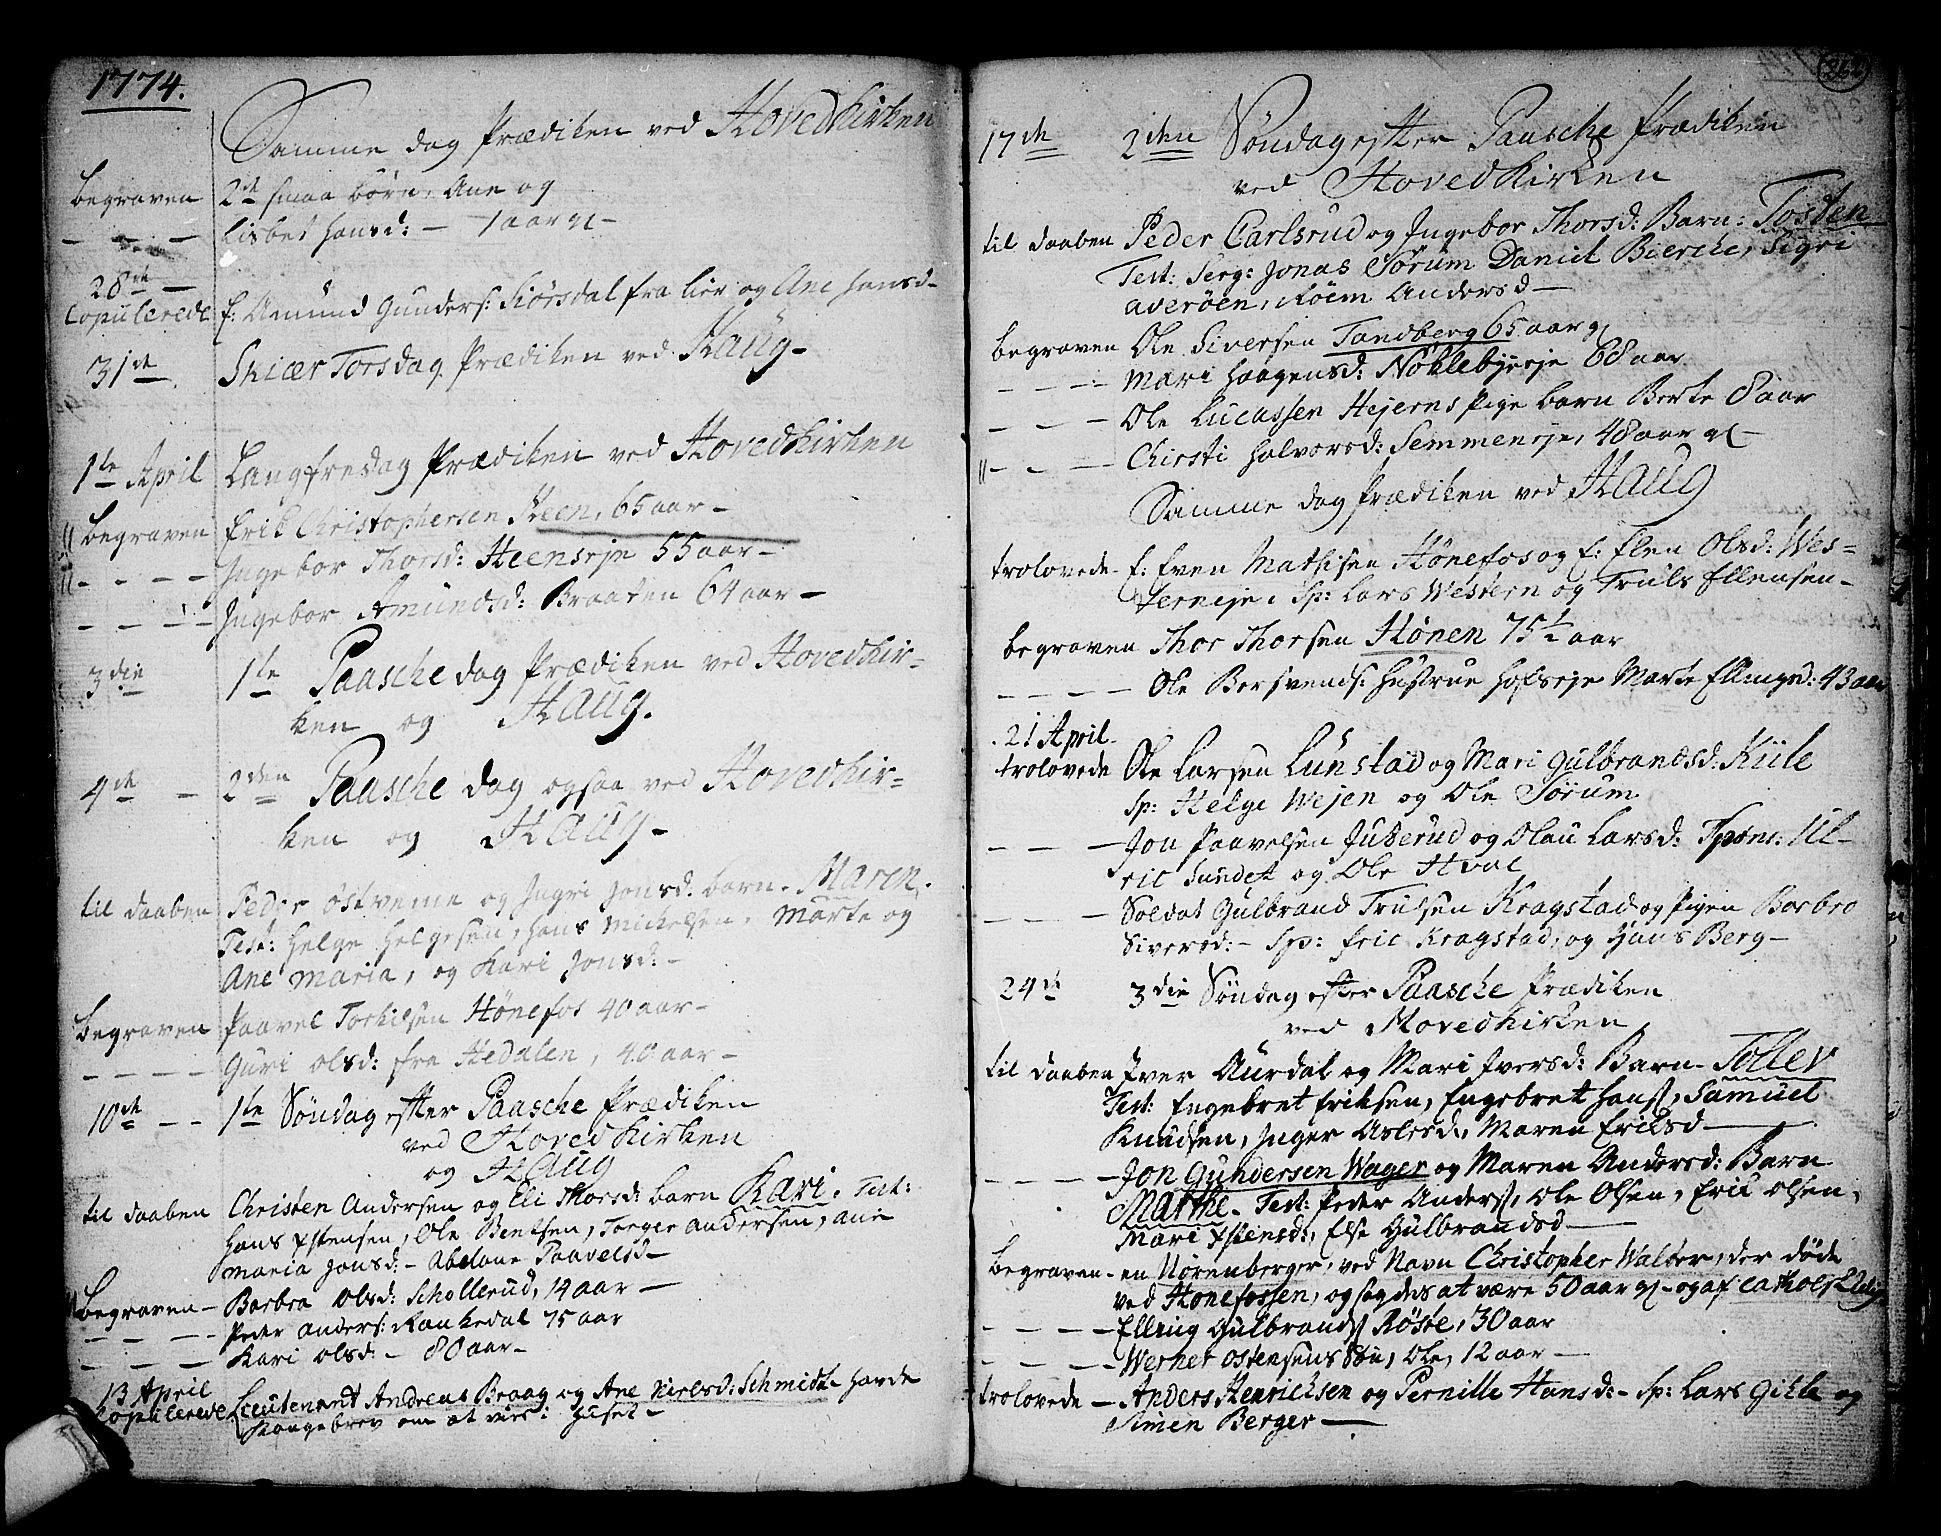 1774.
Samme dag Prædiken ved Hovedkirken
Begraven 2de smaa børn, Ane og
Lisbet Hansd: - 1 aar gl -
28de
Copulerede f: Amund Gunders: Kiørsdal fra Lier og Ane Hansd -
31de Skiær Torsdag Prædiken ved Haug -
1te April Langfredag Prædiken ved Hovedkirken
Begraven Erik Christophersen Heen, 65 aar -
Ingebor Thorsd: Heenseje 55 aar -
Ingebor Amundsd: Braaten 64 aar -
3die 1te Paasche dag Prædiken ved Hovedkir-
ken og Haug.
4de 2den Paasche dag ogsaa ved Hovedkir-
ken og Haug -
til daaben Peder østverne og Ingri Jonsd. barn - Maren.
Test: Helge Helgesen, Hans Mickelsen, Marte og
Ane Maria, og Kari Jonsd: -
Begraven Paavel Torkilsen Hønefos 40 aar -
Guri Olsd: fra Hedalen, 40 aar -
10de 1te Søndag efter Paasche Prædiken
ved Hovedkirken
og Haug
til daaben Christen Andersen og Eli Thorsd: barn Kari. Test:
Hans Xstensen, Ole Bentsen, Torger Andersen, Ane
Maria Jonsd: - Abelone Paavelsd -
Begraven - Barbra Olsd: Schollerud, 14 aar -
Peder Anders: Rankedal 75 aar
Kari Olsd: - 80 aar -
13 April
Copulerede Lieutenant Andreas Braag og Ane Nielsd: Schmidt havde
Kongebrev om at vies i Huset -
262
17de 2den Søndag efter Paasche Prædiken
ved Hovedkirken
til daaben Peder Carlsrud og Ingebor Thorsd: Barn: Tosten
Test: Serg: Jonas Sørum Daniel Bierche, Sigri
Averøen, Andersd -
begraven Ole Siversen Tandberg 65 aar gl
Mari Haagensd: Noklebyeje 68 aar
Ole Lucassen Hejerns Pige barn Berte 8 aar
Chirsti Halvorsd: Semmeneje, 48 aar gl -
Samme dag Prædiken ved Haug
trolovede - f: Even Mathisen Hønefos og f: Elen Olsd: Wes-
terneje, Sp: Lars Western og Truls Ellensen -
begraven Thor Thorsen Hønen 75 1/2 aar
Ole Bersvends: Hustrue Hofseje Marte Ellingsd: 43 aar
21 April
trolovede Ole Larsen Lunstad og Mari Gulbrandsd. Kiile
Sp: Helge Wejen og Ole Sørum
Jon Paavelsen Juterud og Olau Larsd: Spons: Ul-
ric Sundet og Ole Hval
Soldat Gulbrand Trulsen Kragstad og Pigen Barbro
Siversd: - Sp: Eric Kragstad, og Hans Berg -
24de 3die Søndag efter Paasche Prædiken
ved Hovedkirken
til daaben Iver Aurdal og Mari Iversd: Barn - Tollev
Test: Engebret Eriksen, Engebret Hans:, Samuel
Knudsen, Inger Aslesd, Maren Eriksd -
Jon Gundersen Wager og Maren Andersd: Barn
Marthe - Test: Peder Anders:, Ole Olsen, Erik Olsen,
Mari Xstensd:, Else Gulbrandsd -
Begraven - en Nörenberger, ved Navn Christopher Walter, der døde
ved Honefossen, og sagdes at være 50 aar gl - og af catholsk
Elling Gulbrands: Røsøe, 30 aar
Werner Ostensens Søn, Ole, 12 aar -
trolovede - Anders Henrichsen og Pernille Hansd: - Sp: Lars Gikle og
Simen Berger -